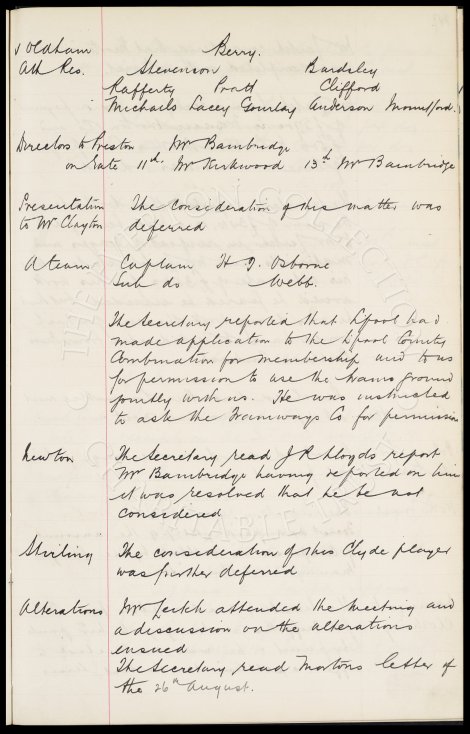 v Oldham Berry.
Ath Res. Stevenson Bardsley
Rafferty Pratt Clifford
Michaels Lacey Gourlay Anderson Mountford.
Directors to Preston Mr Bainbridge
on Gate 11th Mr Kirkwood 13th Mr Bainbridge
Presentation The consideration of this matter was
to Mr Clayton deferred
A team Captain H J Osborne
Sub do Webb.
The Secretary reported that Lpool had
made application to the Lpool County
Combination for membership and to us
for permission to use the trams ground
jointly with us. He was instructed
to ask the Tramways Co for permission
Newton The Secretary read J R Lloyds report
Mr Bainbridge having reported on him
it was resolved that he be not
considered
Stirling The consideration of this Clyde player
was further deferred
Alterations Mr Leitch attended the meeting and
a discussion on the alterations
ensued
The Secretary read Mortons letter of
the 26th August.